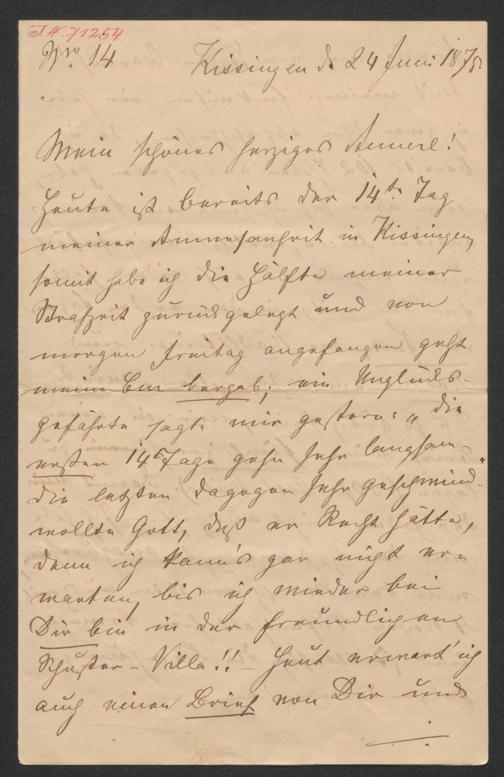 I N 71254
Nro 14 Kissingen d. 24 Juni 1875.
Mein schönes herziges Annerl!
Heute ist bereits der 14te Tag
meiner Anwesenheit in Kissingen,
somit habe ich die Hälfte meiner
Strafzeit zurückgelegt und von
morgen Freitag angefangen geht
meine Cur bergab; ein Unglücks-
gefährte sagte mir gestern: „die
ersten 14 Tage gehn sehr langsam –
die letzten dagegen sehr geschwind“
wollte Gott, daß er Recht hätte,
denn ich kann's gar nicht er-
warten, bis ich wieder bei
Dir bin in der freundlichen
Schuster-Villa!! Heut erwart' ich
auch einen Brief von Dir und